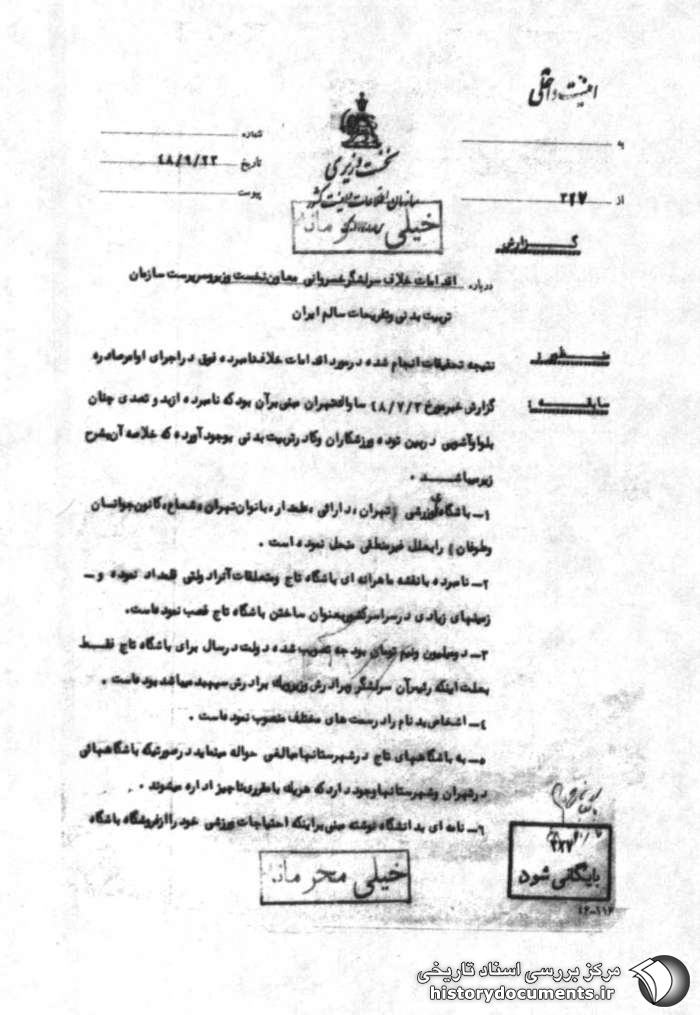 امنیت داخلی
به
از ۳۲۷
نخست وزیری
سازمان اطلاعات و امنیت کشور
شماره
تاریخ ۴۸/۹/۲۳
پیوست
خیلی محرمانه
گزارش
درباره اقدامات خلاف سرلشگر خسروانی معاون نخست وزیر و سرپرست سازمان
تربیت بدنی و تفریحات سالم ایران
منظور: نتیجه تحقیقات انجام شده در مورد اقدامات خلاف نامبرده فوق در اجرای اوامر صادره
سابقه: گزارش خبر مورخ ۴۸/۷/۲ ساواک تهران مبنی بر آن بود که نامبرده از ید و تصدی چنان
بلوا و آشوبی در بین توده ورزشکاران و کادر تربیت بدنی بوجود آورده که خلاصه آن بشرح
زیر میباشد.
۱- باشگاه ورزشی (تهران، دارائی، بانوان تهران، شعاع، کانون جوانان
و طوفان) را بعلل غیر منطقی منحل نموده است.
۲- نامبرده با نقشه ماهرانه ای باشگاه تاج و متعلقات آنرا دولتی قلمداد نموده و -
زمینهای زیادی در سراسر کشور بعنوان ساختن باشگاه تاج غصب نموده است.
۳- دو میلیون و نیم تومان بودجه تصویب شده دولت در سال برای باشگاه تاج فقط
بعلت اینکه رئیس آن سرلشگر و برادرش وزیر و یک برادرش سپهبد میباشد بوده است.
۴- اشخاص بد نام را در سمت های مختلف منصوب نموده است.
۵- به باشگاههای تاج در شهرستانها مبالغی حواله مینماید در صورتیکه باشگاههائی
در تهران و شهرستانها وجود دارد که هر یک با مقرری ناچیز اداره میشوند.
۶- نامه ای بدانشگاه نوشته مبنی بر اینکه احتیاجات ورزشی خود را از فروشگاه باشگاه
خیلی محرمانه
۳۲۷
بایگانی شود
مرکز بررسی اسناد تاریخی
historydocuments.ir